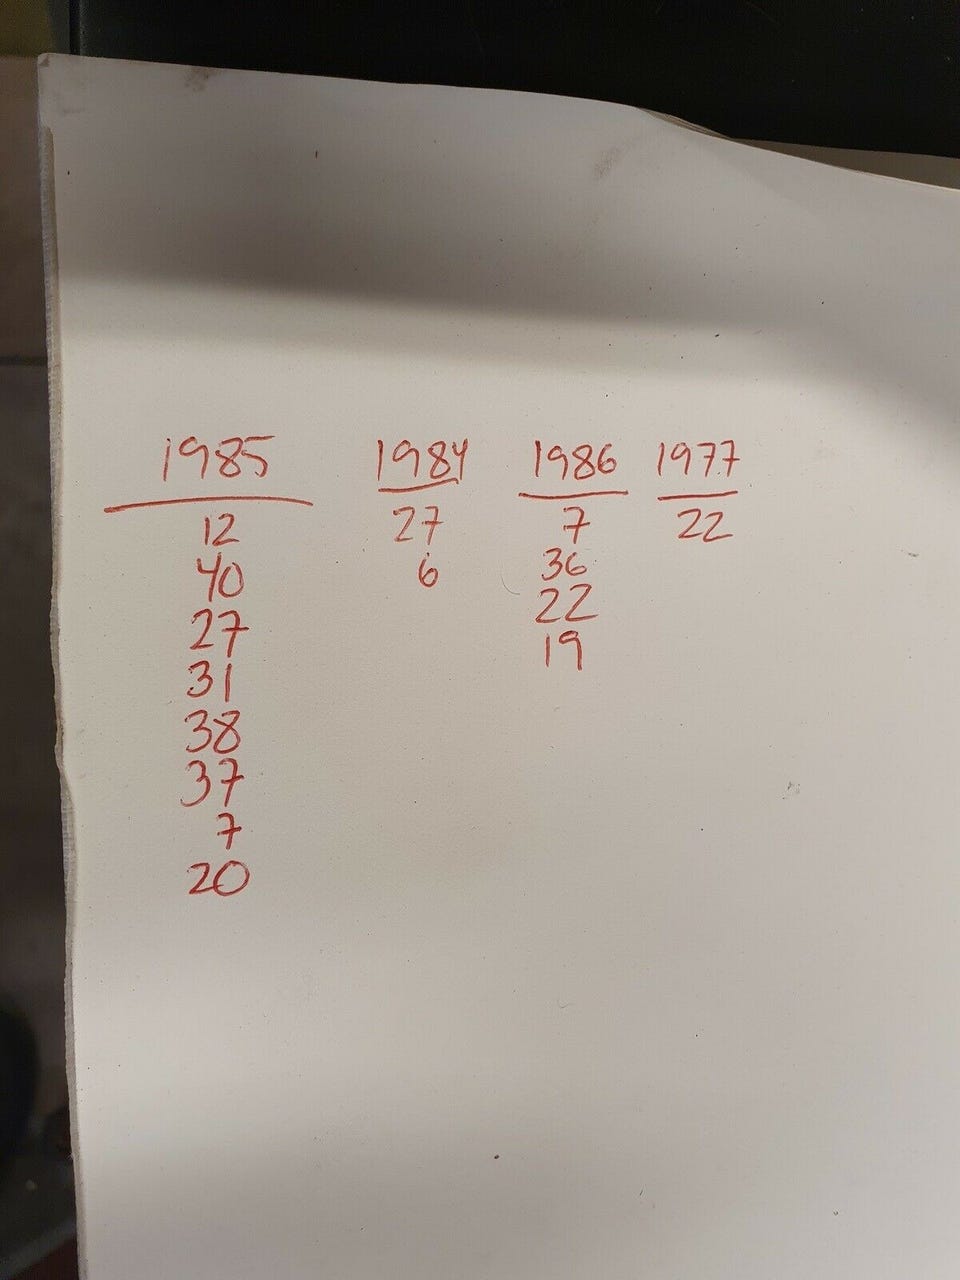 1985 1984 1986 1977
12 27 7 22
40 6 36
27 22
31 19
38
37
7
20